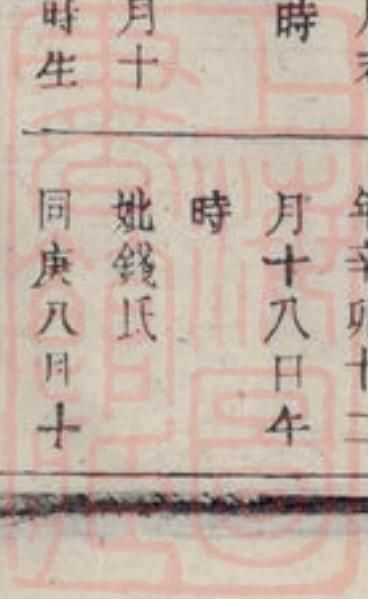 時
月十
時生
年辛卯十二
月十八日午
時
妣錢氏
同庚八月十